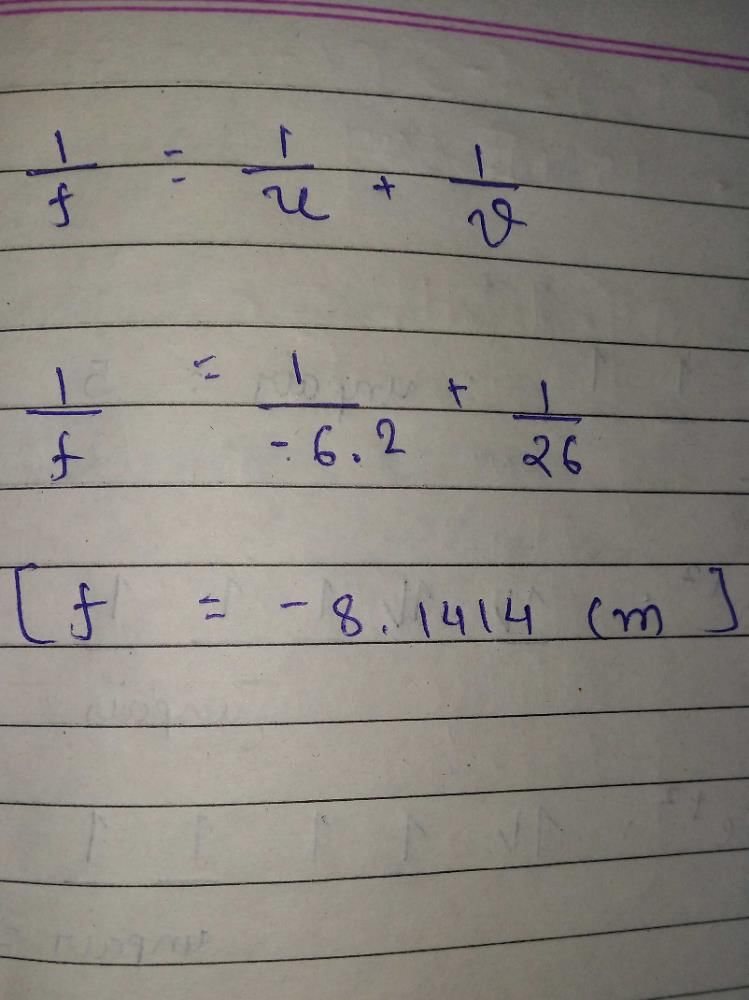 1/f = 1/u + 1/v
1/f = 1/-6.2 + 1/26
[f = -8.1414 cm]